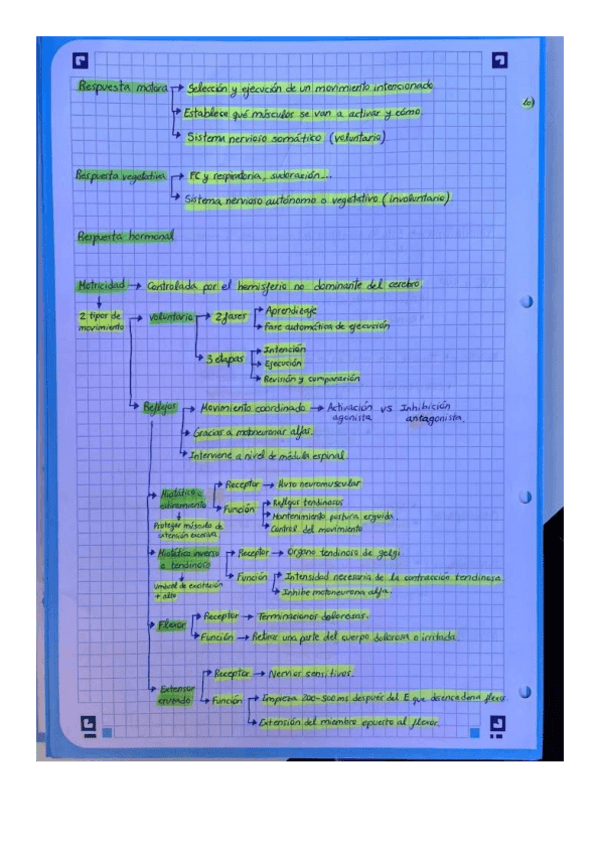 6)
Respuesta motora → Selección y ejecución de un movimiento intencionado
→ Establece qué músculos se van a activar y cómo.
→ Sistema nervioso somático (voluntario)
Respuesta vegetativa → FC y respiratoria, sudoración...
→ Sistema nervioso autónomo o vegetativo (involuntario).
Respuesta hormonal
Motricidad → Controlada por el hemisferio no dominante del cerebro
2 tipos de
movimiento
→ Voluntario → 2 fases → Aprendizaje
→ Fase automática de ejecución
→ 3 etapas → Intención
→ Ejecución
→ Revisión y comparación
→ Reflejos → Movimiento coordinado → Activación agonista vs Inhibición antagonista.
→ Gracias a motoneuronas alfas.
→ Interviene a nivel de médula espinal.
→ Miotático o
estiramiento
Proteger músculo de
extensión excesiva
→ Receptor → Huso neuromuscular
→ Función → Reflejos tendinosos
→ Mantenimiento postura erguida.
→ Control del movimiento
→ Miotático inverso
o tendinoso
Umbral de excitación
+ alto
→ Receptor → Órgano tendinoso de golgi
→ Función → Intensidad necesaria de la contracción tendinosa
→ Inhibe motoneurona alfa.
→ Flexor → Receptor → Terminaciones dolorosas.
→ Función → Retirar una parte del cuerpo dolorosa o irritada.
→ Extensor
cruzado
→ Receptor → Nervios sensitivos.
→ Función → Empieza 200-500 ms después del E que desencadena flexor.
→ Extensión del miembro opuesto al flexor.